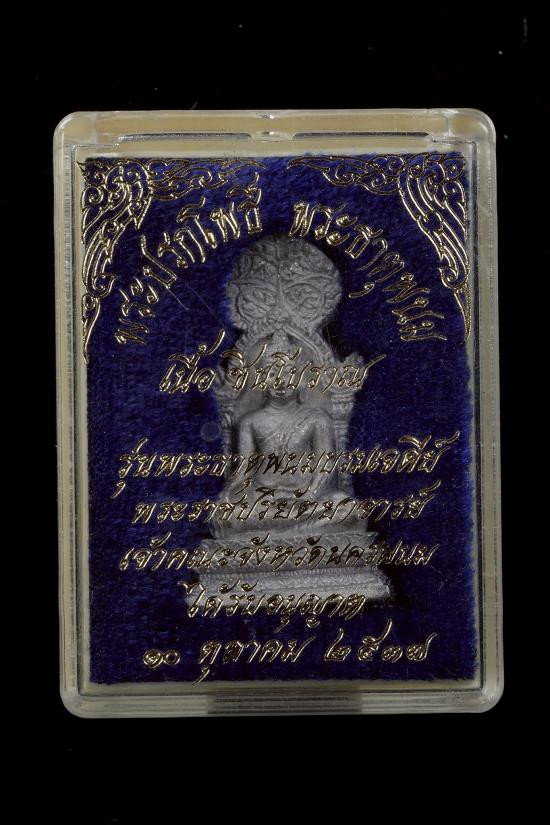 พระปรกโพธิ์ พระธาตุพนม
เนื้อ ชินโบราณ
รุ่นพระธาตุพนมบรมเจดีย์
พระราชปริยัตยาจารย์
เจ้าคณะจังหวัดนครพนม
ได้รับอนุญาต
๑๐ ตุลาคม ๒๕๓๗